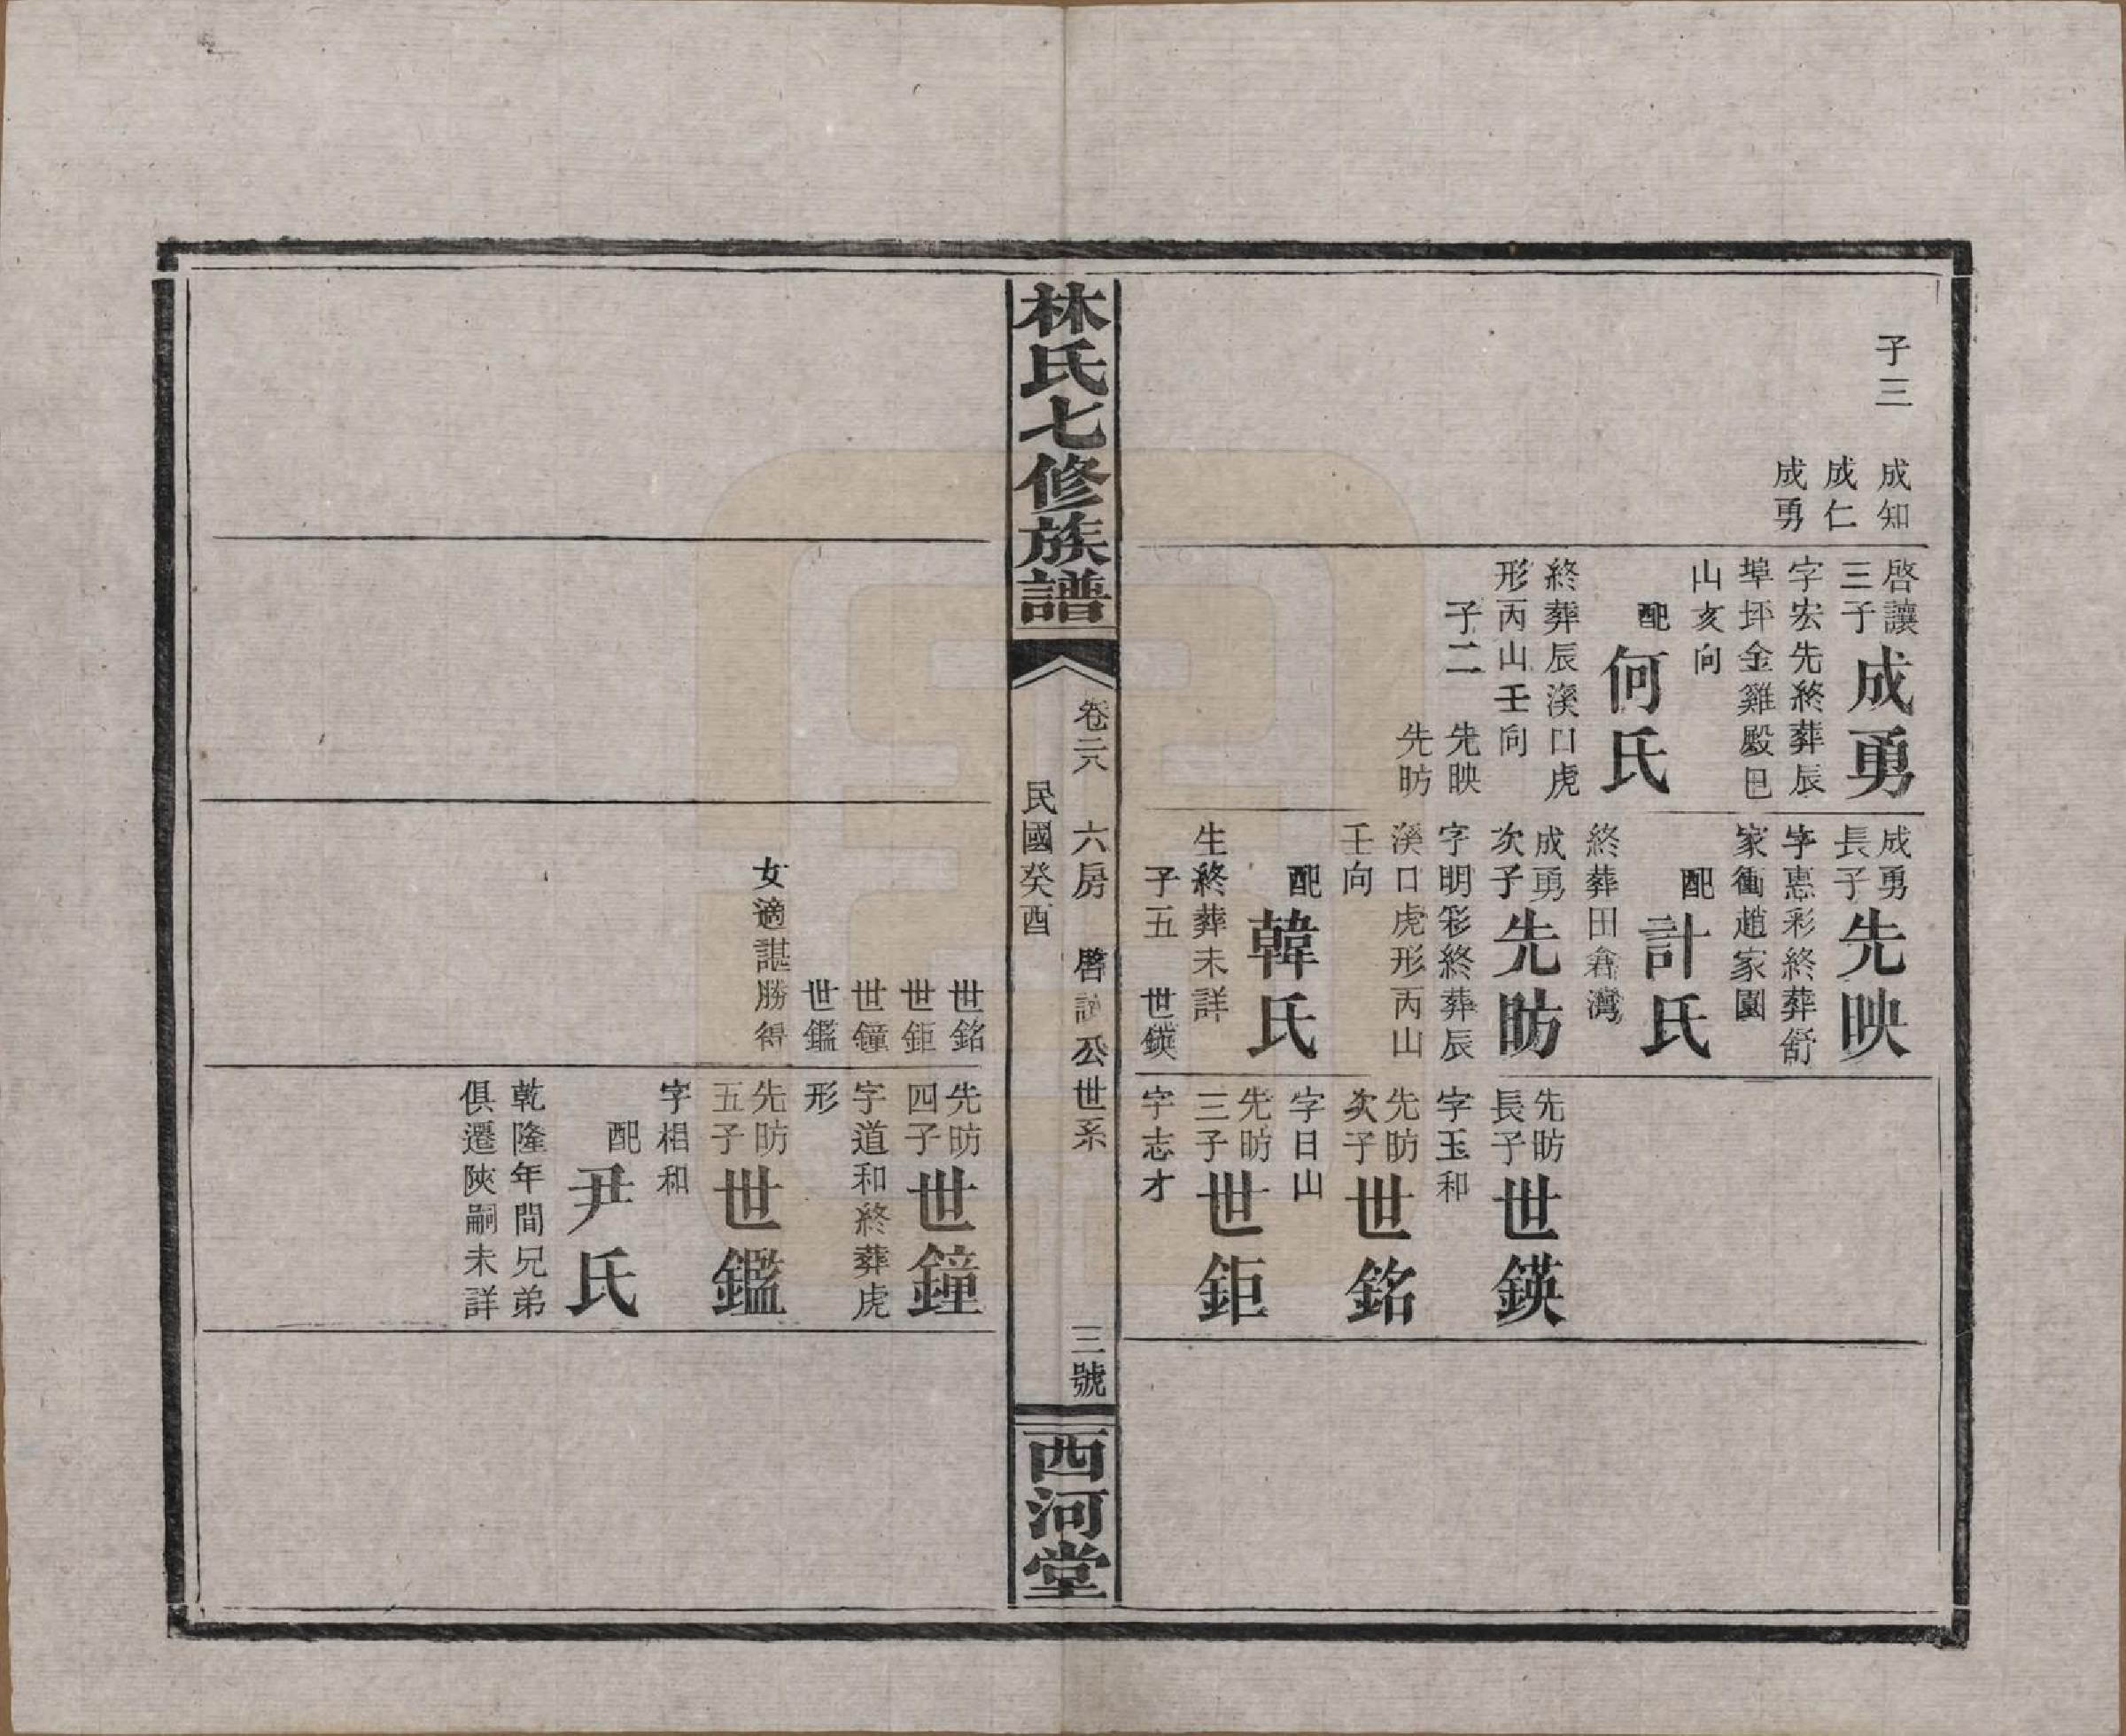 子三
成知
成仁
成勇
啓讓
三子
成勇
字宏先終葬辰
埠坪金雞殿巳
山亥向
配
何氏
終葬辰溪口虎
形丙山壬向
子二
先映
先昉
成勇
長子
先映
字惠彩終葬舒
家衝趙家園
配
計氏
終葬田倉灣
成勇
次子
先昉
字明彩終葬辰
溪口虎形丙山
壬向
配
韓氏
生終葬未詳
子五
世鍈
先昉
長子
世鍈
字玉和
先昉
次子
世銘
字日山
先昉
三子
世鉅
字志才
林氏七修族譜
卷二八
六房
啓讓公世系
三號
民國癸酉
西河堂
世銘
世鉅
世鐘
世鑑
女適諶勝得
先昉
四子
世鐘
字道和終葬虎
形
先昉
五子
世鑑
字相和
配
尹氏
乾隆年間兄弟
俱遷陝嗣未詳